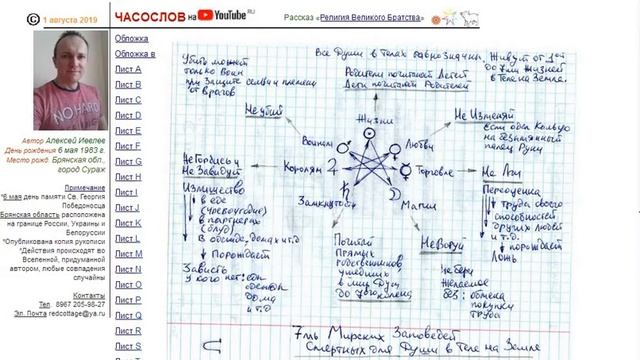 © 1 августа 2019
ЧАСОСЛОВ на YouTube RU
Рассказ «Религия Великого Братства»
NO
HARD
Автор Алексей Ивелее
День рождения 6 мая 1983 г.
Место рожд. Брянская обл.,
город Сураж
Примечание
"6 мая день памяти Св. Георгия
Победоносца
Брянская область расположена
на границе России, Украины и
Белоруссии
"Опубликована копия рукописи
"Действия происходят во
Вселенной, придуманной
автором, любые совпадения
случайны
Контакты
Тел. 8967 205-98-27
Эл. Почта redcottage@ya.ru
Обложка
Обложка в
Лист A
Лист B
Лист C
Лист D
Лист E
Лист F
Лист G
Лист H
Лист I
Лист J
Лист K
Лист L
Лист M
Лист N
Лист O
Лист P
Лист Q
Лист R
Лист S
Все Души в Телах равнозначны. Живут от 1ой
до 7ми Жизней
в Теле на Земле.
Убить может
только Воин
при Защите семьи и племени
от Врагов
Родители почитают Детей
Дети почитают Родителей
Не убий
Жизни
Не Изменяй
Есть одно Кольцо
на безымянный
палец Руки
Воинам
Любви
Не Гордись и
Не Завидуй
Королям
Торговле
Не Лги
Излишество
в еде
(чревоугодие)
в партнерах
(блуд)
в одежде, домах и т.д.
Порождает
Зависть
у кого нет: еды
одежды
дома
и т.д.
Магии
Почитай
прямых
родственников,
ушедших
в мир Душ
до 7ого колена
Не Воруй
Не бери
Желаемое
без: обмена
покупки
труда
Переоценка
труда своего
способностей
других людей
и т.д.
порождает
Ложь
7мь Мирских Заповедей
Смертных для Души в Теле на Земле